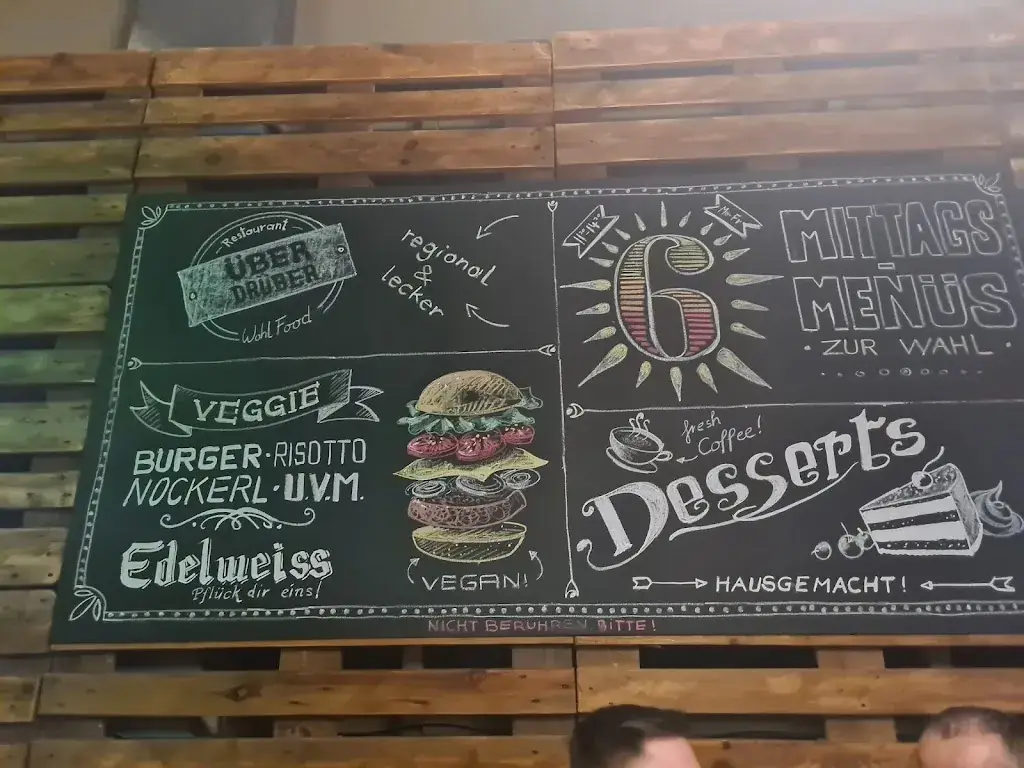 Restaurant
ÜBER
DRÜBER
Wohl Food
regional
&
lecker
VEGGIE
BURGER · RISOTTO
NOCKERL · U.V.M.
Edelweiss
Pflück dir eins!
VEGAN!
6
Mo-Fr
MITTAGS
-
MENÜS
· ZUR WAHL ·
fresh
Coffee!
Desserts
HAUSGEMACHT!
NICHT BERÜHREN BITTE!